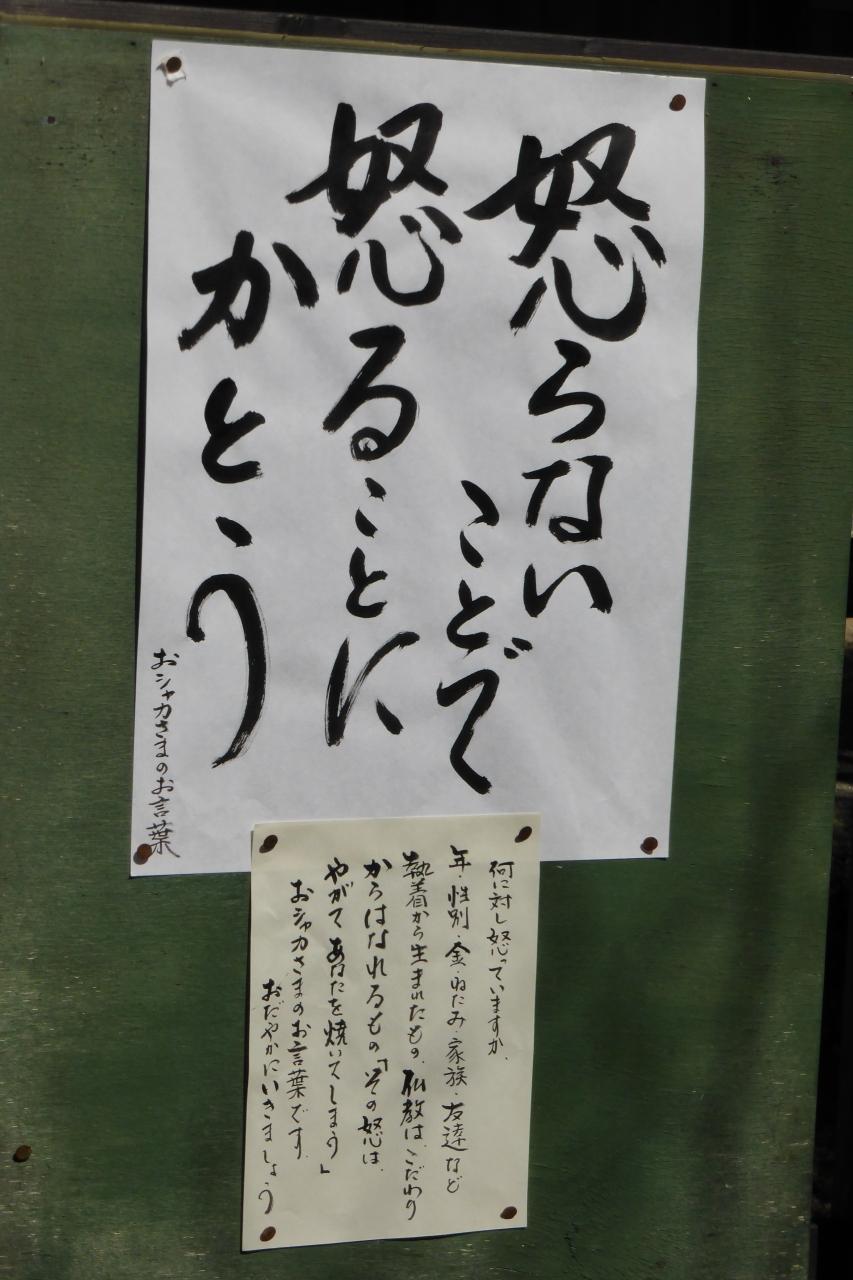 怒らない
ことで
怒ることに
かとう
おシャカさまのお言葉
何に対し怒っていますか、
年・性別・金・ねたみ・家族・友達など
執着から生まれたもの、仏教は、こだわり
からはなれるもの「その怒は、
やがてあなたを焼いてしまう」
おシャカさまのお言葉です、
おだやかにいきましょう